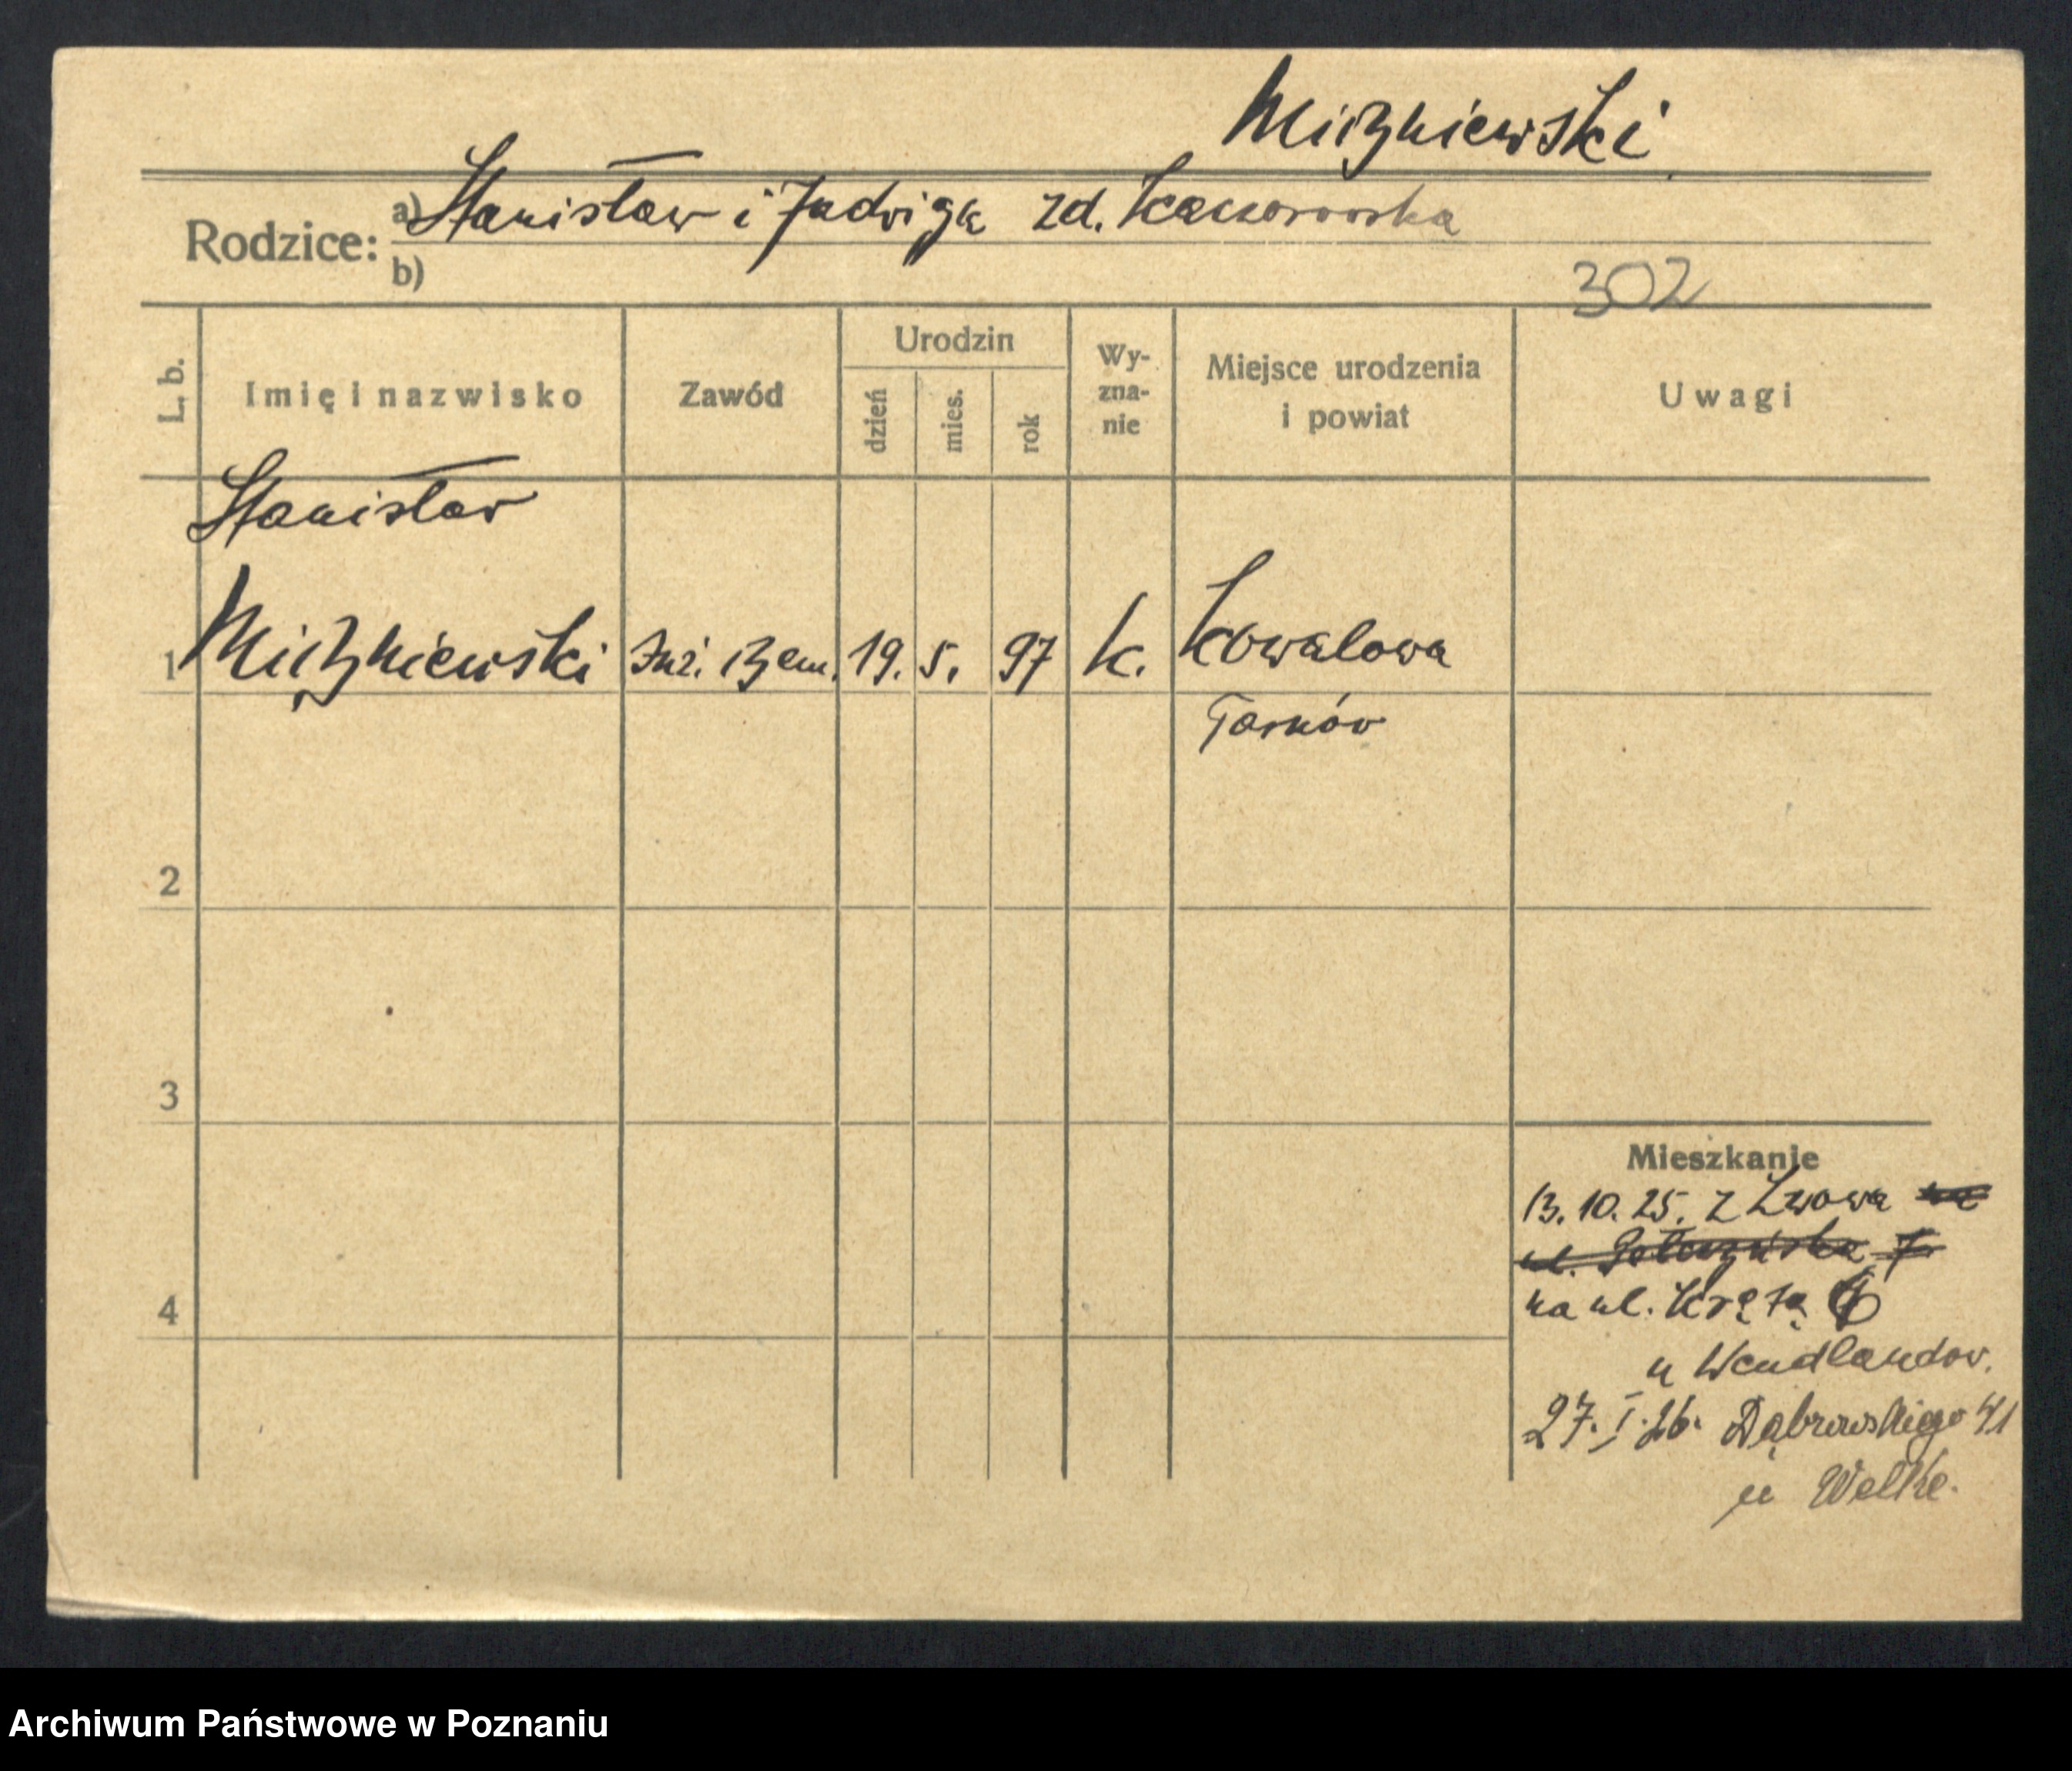 Mięźniewski
Rodzice: a) Stanisław i Jadwiga zd. Kaczorowska
b)
302
L. b. Imię i nazwisko Zawód Urodzin dzień mies. rok Wyznanie Miejsce urodzenia i powiat Uwagi
Stanisław
1 Mięźniewski Inż. 19. 5. 97 k. Kowalowa
Tarnów
2
3
Mieszkanie
13. 10. 25. z Lwowa na
ul. 7
4
na ul. Krętą
u Wendlandow.
27. I. 26. Dąbrowskiego 41
u Welke.
Archiwum Państwowe w Poznaniu